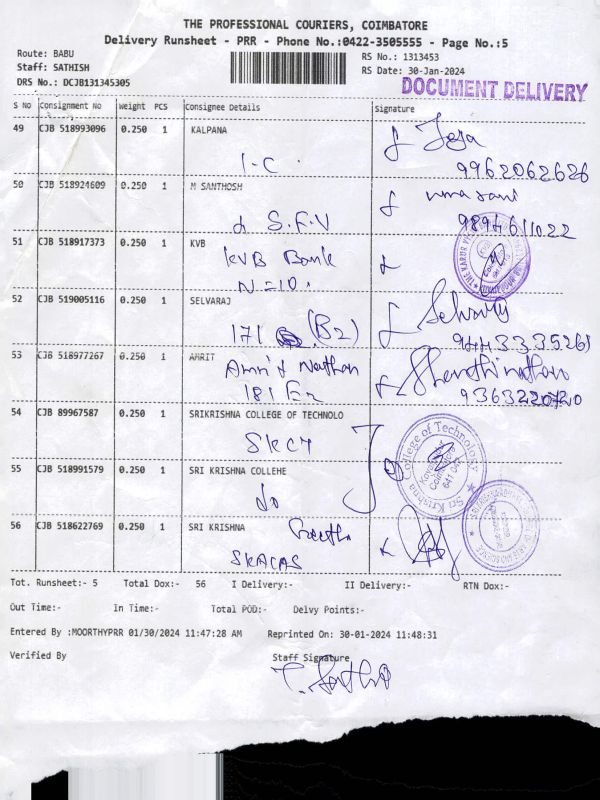 THE PROFESSIONAL COURIERS, COIMBATORE
Delivery Runsheet - PRR - Phone No.:0422-3505555 - Page No.:5
Route: BABU
RS No.: 1313453
Staff: SATHISH
RS Date: 30-Jan-2024
DRS No.: DCJB131345305
DOCUMENT DELIVERY
S No Consignment No Weight PCS Consignee Details Signature
49 CJB 518993096 0.250 1 KALPANA
I-C
9962062626
50 CJB 518924609 0.250 1 M SANTHOSH
S.F.V
9894611022
51 CJB 518917373 0.250 1 KVB
KVB Bank
N=10.
52 CJB 519005116 0.250 1 SELVARAJ
171 (B2)
9443335261
53 CJB 518977267 0.250 1 AMRIT
Amrit Nathan
181
54 CJB 89967587 0.250 1 SRIKRISHNA COLLEGE OF TECHNOLO
SKCT
Sri Krishna College of Technology
Coimbatore
641 042
55 CJB 518991579 0.250 1 SRI KRISHNA COLLEHE
do
56 CJB 518622769 0.250 1 SRI KRISHNA
Geetha
SKACAS
Tot. Runsheet:- 5 Total Dox:- 56 I Delivery:- II Delivery:- RTN Dox:-
Out Time:- In Time:- Total POD:- Delvy Points:-
Entered By :MOORTHYPRR 01/30/2024 11:47:28 AM Reprinted On: 30-01-2024 11:48:31
Verified By Staff Signature